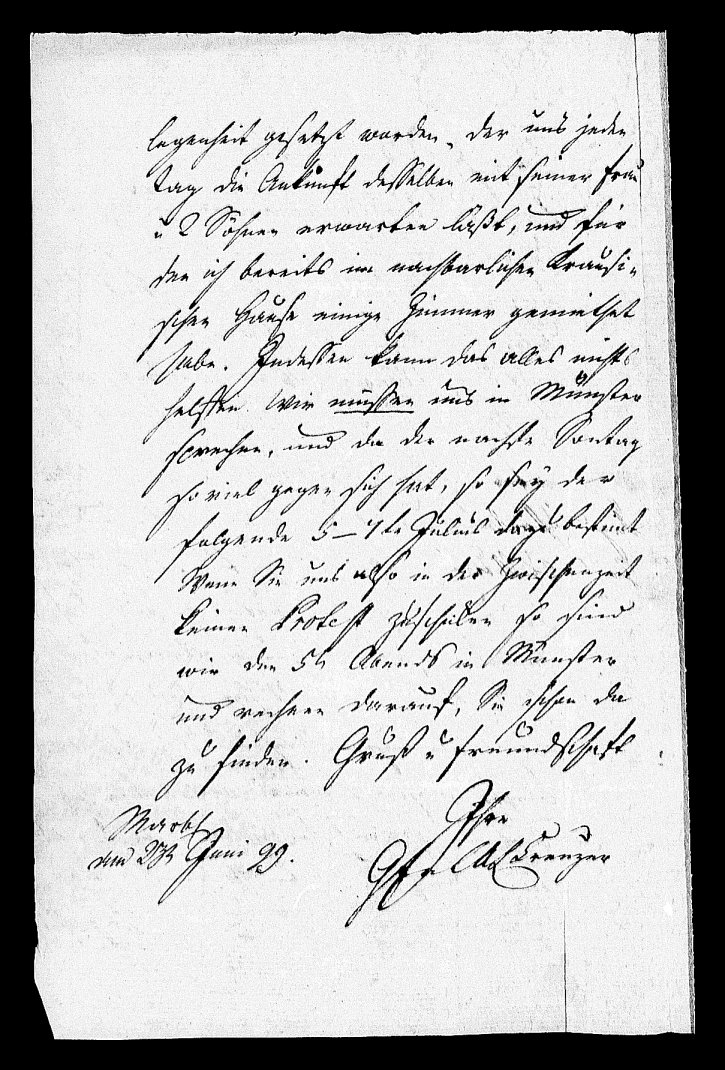 legenheit gesetzt worden, der uns jeden
Tag die Ankunft desselben mit seiner Frau
u 2 Söhnen erwarten läßt, und für
den ich bereits im nachbarlichen Krausi-
schen Hause einige Zimmer gemiethet
habe. Indessen kann das alles nichts
helffen. Wir müssen uns in Münster
sprechen, und da der nachste Sontag
so viel gegen sich hat, so sey der
folgende 5–7te Julius dazu bestimt
Wenn Sie uns also in der Zwischenzeit
keinen Protest zuschicken so sind
wir den 5t Abends in Münster
und rechnen darauf, Sie schon da
zu finden. Gruß u Freundschaft
Ihr
Creuzer
Marb
am 23t Juni 99.